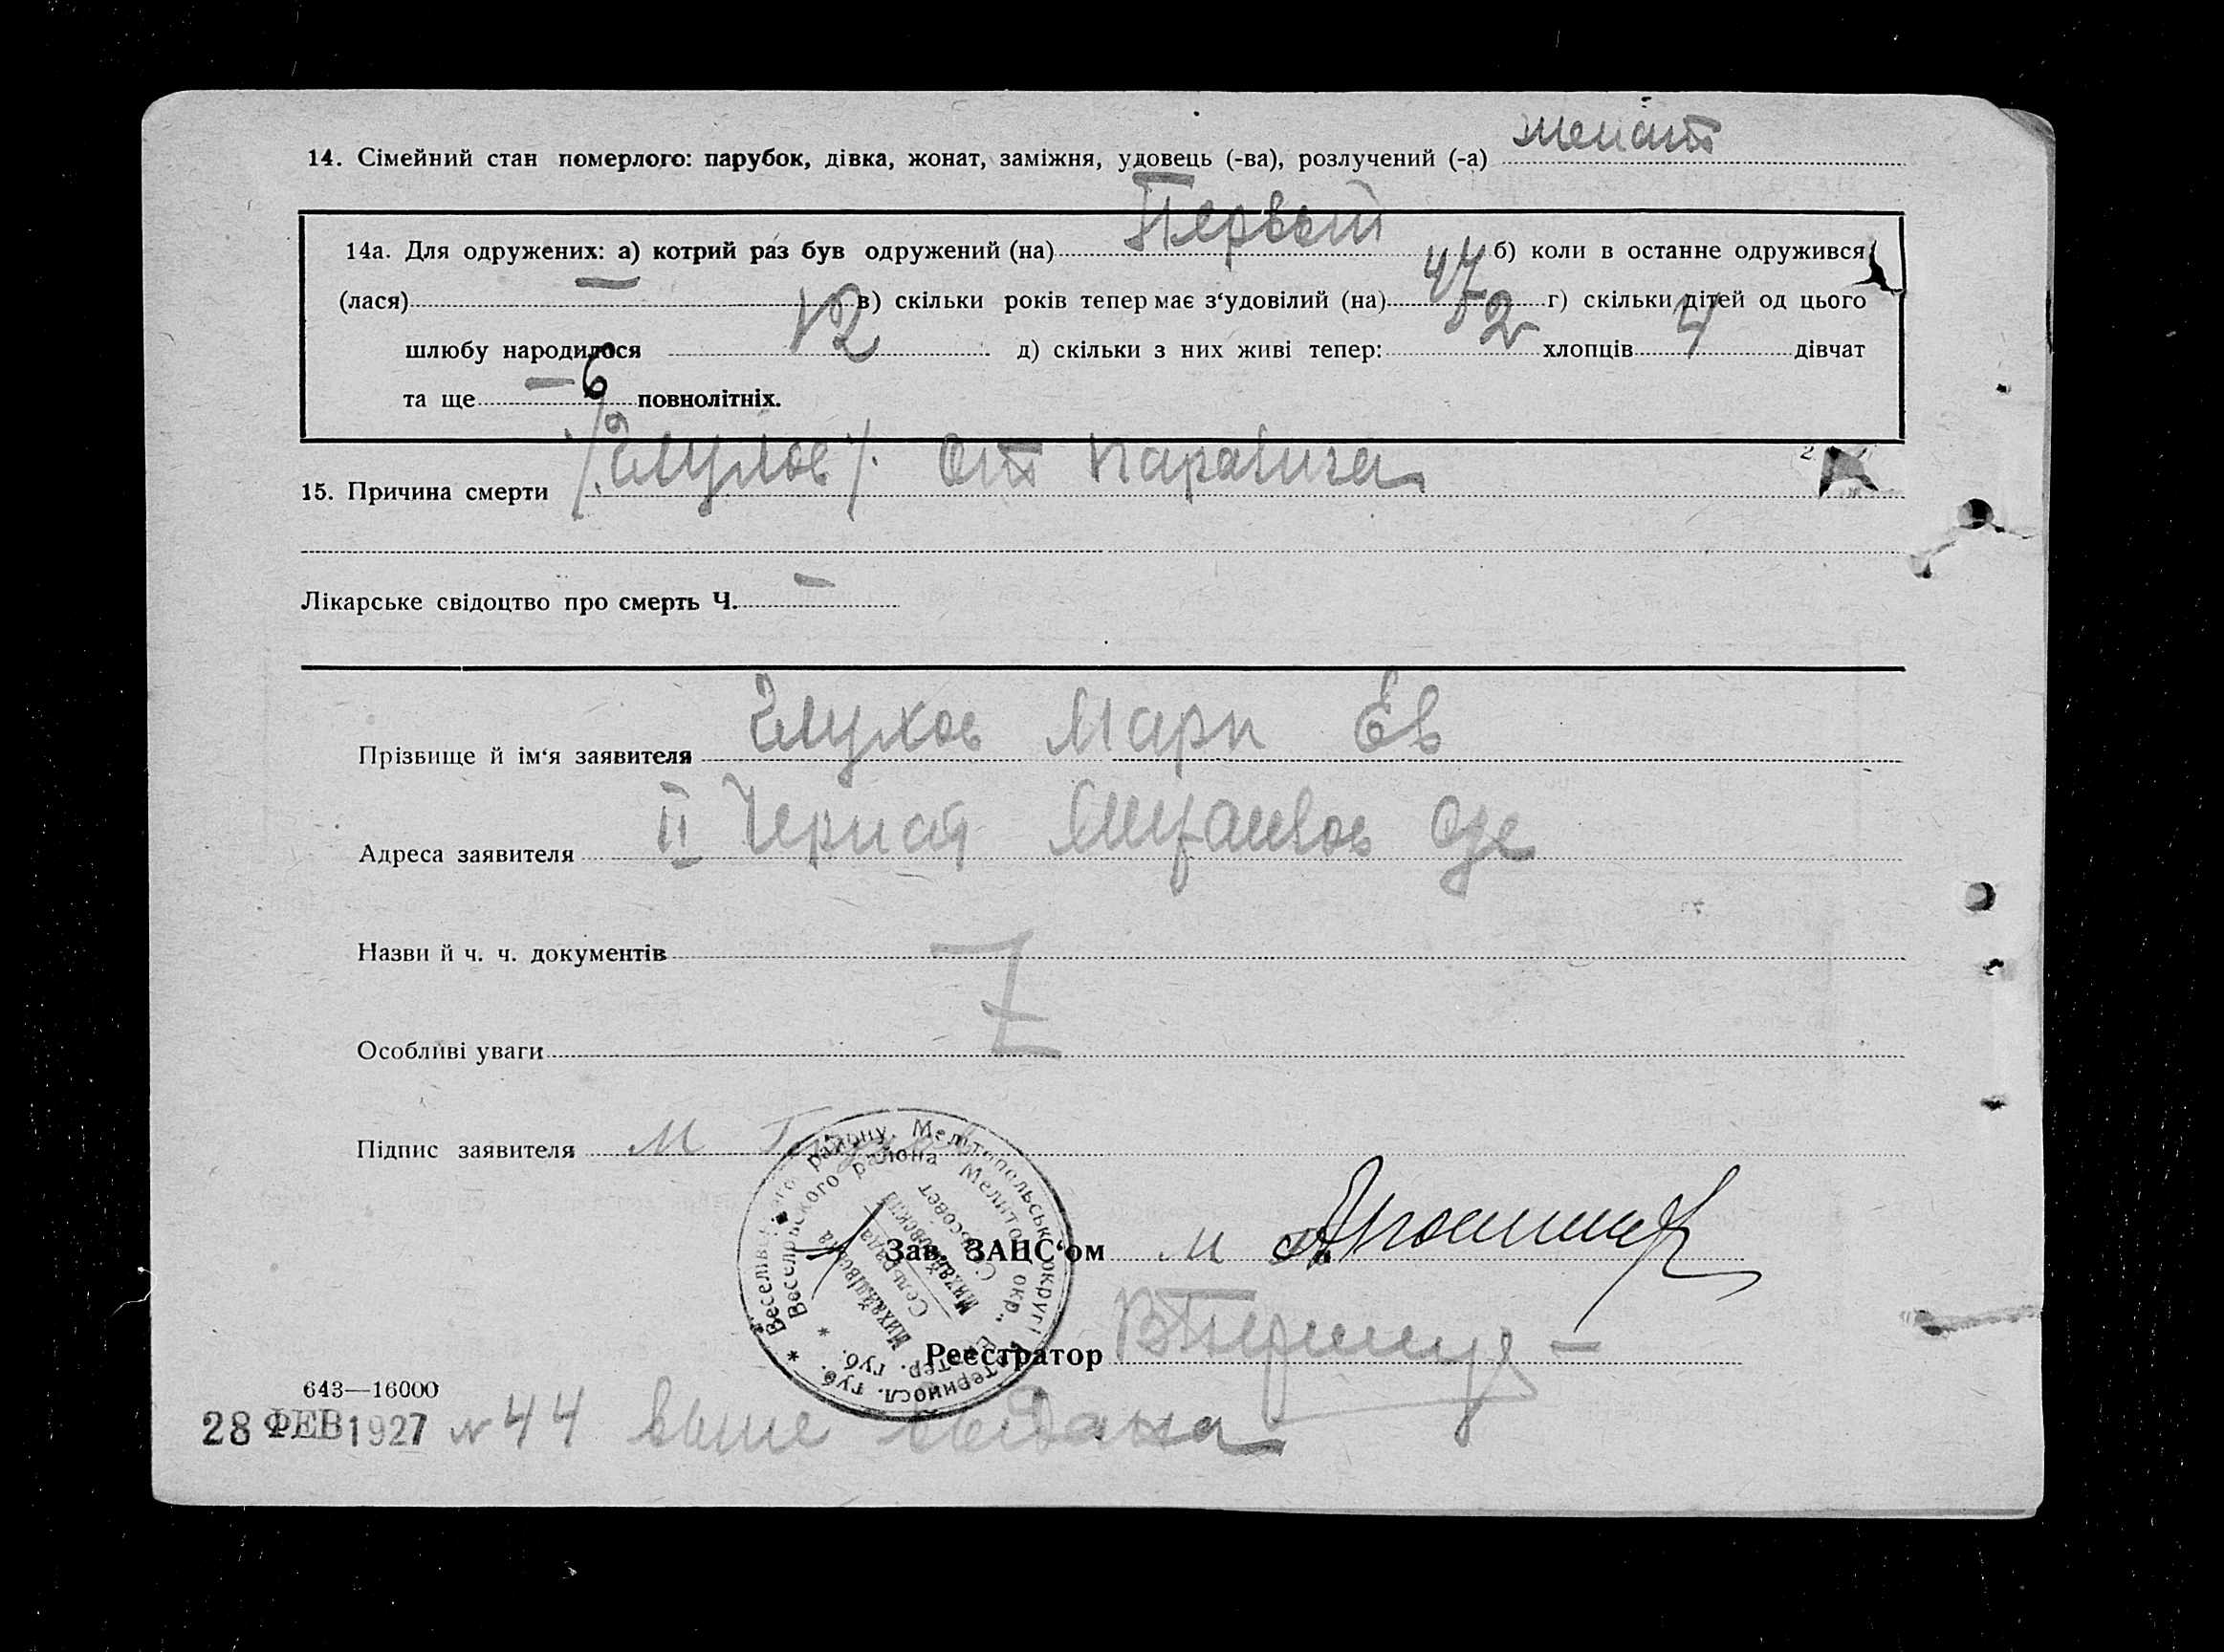 14. Сімейний стан померлого: парубок, дівка, жонат, заміжня, удовець (-ва), розлучений (-а) женат
14а. Для одружених: а) котрий раз був одружений (на) Первый б) коли в останне одружився
(лася) — в) скільки років тепер має з‘удовілий (на) 47 г) скільки дітей од цього
шлюбу народилося 12 д) скільки з них живі тепер: 2 хлопців 4 дівчат
та ще — 6 повнолітніх.
15. Причина смерти От Паралича
Лікарське свідоцтво про смерть Ч. —
Прізвище й ім‘я заявителя Глухов Марк Ев
Адреса заявителя II Чернат
Назви й ч. ч. документів
Особливі уваги
Підпис заявителя М
Веселівського району Мелітопольськ. округи Катериносл. губ.
Весел район Мелитоп. окр. Екатер. губ.
Михайлівська Сельрада
Михайловский Сельсовет
Зав. ЗАЦС‘ом
Реєстратор
643—16000
28 ФЕВ 1927 № 44 выше выдана